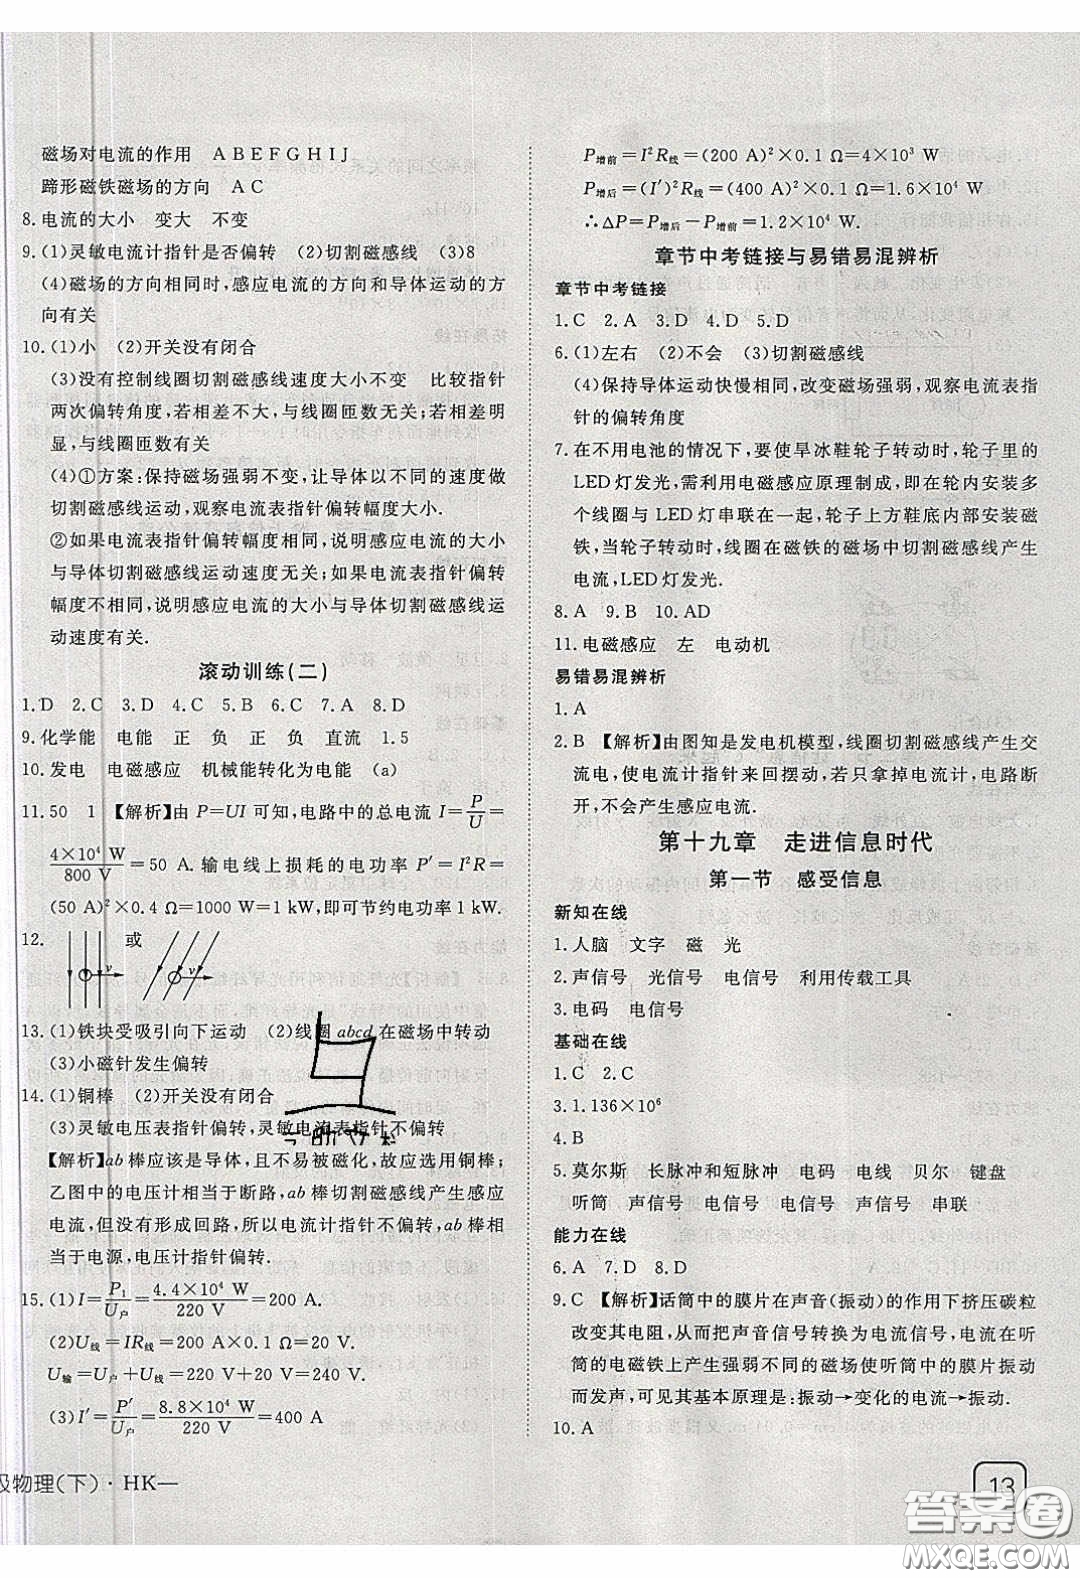 磁场对电流的作用 ABEFGHIJ
蹄形磁铁磁场的方向 AC
8.电流的大小 变大 不变
9.(1)灵敏电流计指针是否偏转 (2)切割磁感线 (3)8
(4)磁场的方向相同时,感应电流的方向和导体运动的方
向有关
10.(1)小 (2)开关没有闭合
(3)没有控制线圈切割磁感线速度大小不变 比较指针
两次偏转角度,若相差不大,与线圈匝数无关;若相差明
显,与线圈匝数有关
(4)①方案:保持磁场强弱不变,让导体以不同的速度
切割磁感线运动,观察电流表指针偏转幅度大小.
②如果电流表指针偏转幅度相同,说明感应电流的大小
与导体切割磁感线运动速度无关;如果电流表指针偏转
幅度不相同,说明感应电流的大小与导体切割磁感线运
动速度有关.
滚动训练(二)
1.D 2.C 3.D 4.C 5.B 6.C 7.A 8.D
9.化学能 电能 正 负 正 负 直流 1.5
10.发电 电磁感应 机械能转化为电能 (a)
11.50 1 【解析】由 P=UI 可知,电路中的总电流 I=P/U=
4×10⁴ W/800 V=50 A.输电线上损耗的电功率 P′=I²R=
(50 A)²×0.4 Ω=1000 W=1 kW,即可节约电功率1 kW.
12. 或
v v
13.(1)铁块受吸引向下运动 (2)线圈 abcd 在磁场中转动
(3)小磁针发生偏转
14.(1)铜棒 (2)开关没有闭合
(3)灵敏电压表指针偏转,灵敏电流表指针不偏转
【解析】ab 棒应该是导体,且不易被磁化,故应选用铜棒;
乙图中的电压计相当于断路,ab 棒切割磁感线产生感应
电流,但没有形成回路,所以电流计指针不偏转,ab 棒相
当于电源,电压计指针偏转.
15.(1)I=P₁/U户=4.4×10⁴ W/220 V=200 A.
(2)U线=IR线=200 A×0.1 Ω=20 V.
U输=U户+U线=220 V+20 V=240 V.
(3)I′=P′/U户=8.8×10⁴ W/220 V=400 A
级物理(下)·HK—
P增前=I²R线=(200 A)²×0.1 Ω=4×10³ W
P增后=(I′)²R线=(400 A)²×0.1 Ω=1.6×10⁴ W
∴ΔP=P增后−P增前=1.2×10⁴ W.
章节中考链接与易错易混辨析
章节中考链接
1.C 2.A 3.D 4.D 5.D
6.(1)左右 (2)不会 (3)切割磁感线
(4)保持导体运动快慢相同,改变磁场强弱,观察电流表指
针的偏转角度
7.在不用电池的情况下,要使旱冰鞋轮子转动时,轮子里的
LED灯发光,需利用电磁感应原理制成,即在轮内安装多
个线圈与LED灯串联在一起,轮子上方鞋底内部安装磁
铁,当轮子转动时,线圈在磁铁的磁场中切割磁感线产生
电流,LED灯发光.
8.A 9.B 10.AD
11.电磁感应 左 电动机
易错易混辨析
1.A
2.B 【解析】由图知是发电机模型,线圈切割磁感线产生交
流电,使电流计指针来回摆动,若只拿掉电流计,电路断
开,不会产生感应电流.
第十九章 走进信息时代
第一节 感受信息
新知在线
1.人脑 文字 磁 光
2.声信号 光信号 电信号 利用传载工具
3.电码 电信号
基础在线
1.C 2.C
3.1.136×10⁶
4.B
5.莫尔斯 长脉冲和短脉冲 电码 电线 贝尔 键盘
听筒 声信号 电信号 电信号 声信号 串联
能力在线
6.A 7.D 8.D
9.C 【解析】话筒中的膜片在声音(振动)的作用下挤压碳粒
改变其电阻,从而把声音信号转换为电流信号,电流在听
筒的电磁铁上产生强弱不同的磁场使听筒中的膜片振动
而发声,可见其基本原理是:振动→变化的电流→振动.
10.A
13
答案圈
MXQE.COM